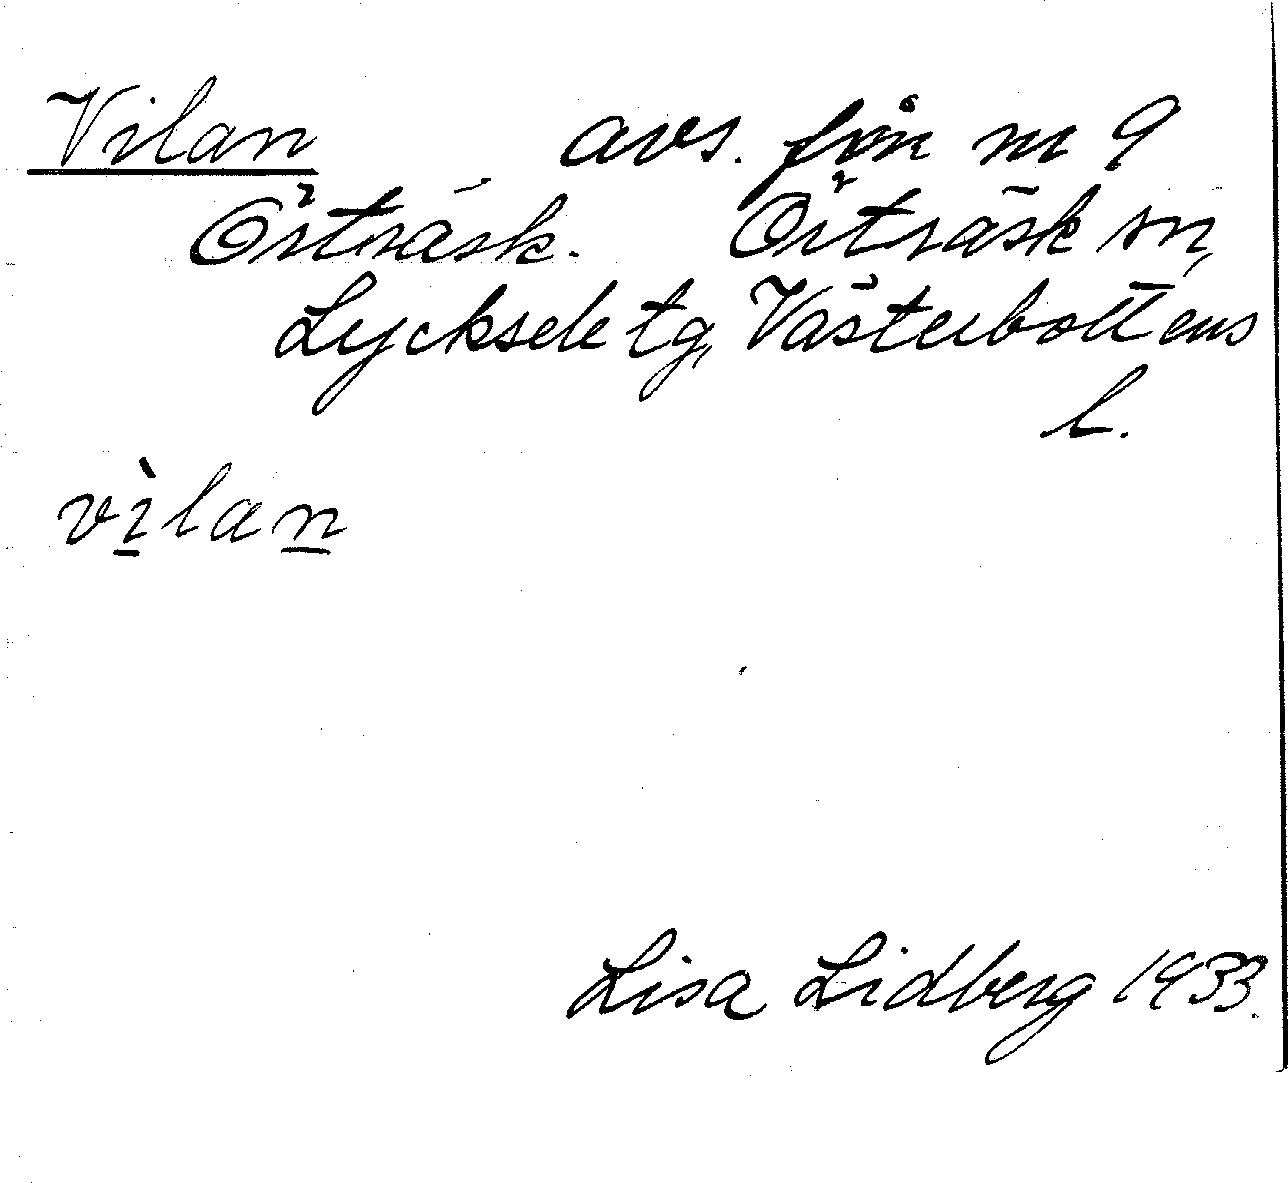 Vilan avs. från nr 9
Örträsk. Örträsk sn,
Lycksele tg, Västerbottens
l.
vìlan
Lisa Lidberg 1933.